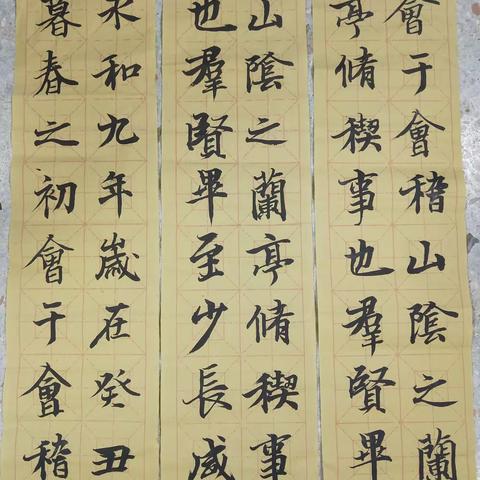 永和九年歲在癸丑
暮春之初會于會稽
山陰之蘭亭脩稧事
也羣賢畢至少長咸
會于會稽山陰之蘭
亭脩稧事也羣賢畢